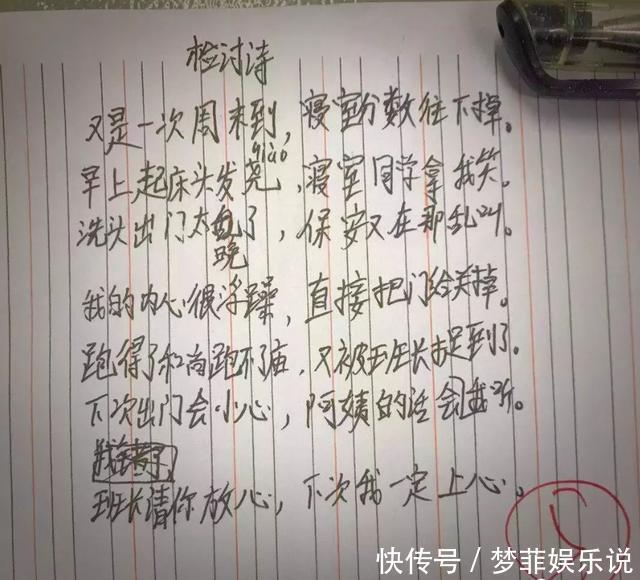 检讨诗
又是一次周末到，寝室分数往下掉。
yiào
早上起床头发尧，寝室同学拿我笑。
洗头出门太了，保安又在那乱叫。
晚
我的内心很浮躁，直接把门给关掉。
跑得了和尚跑不了庙，又被班长捉到了。
下次出门会小心，阿姨的话会听。
班长请你放心，下次我一定上心。
快传号 / 梦菲娱乐说